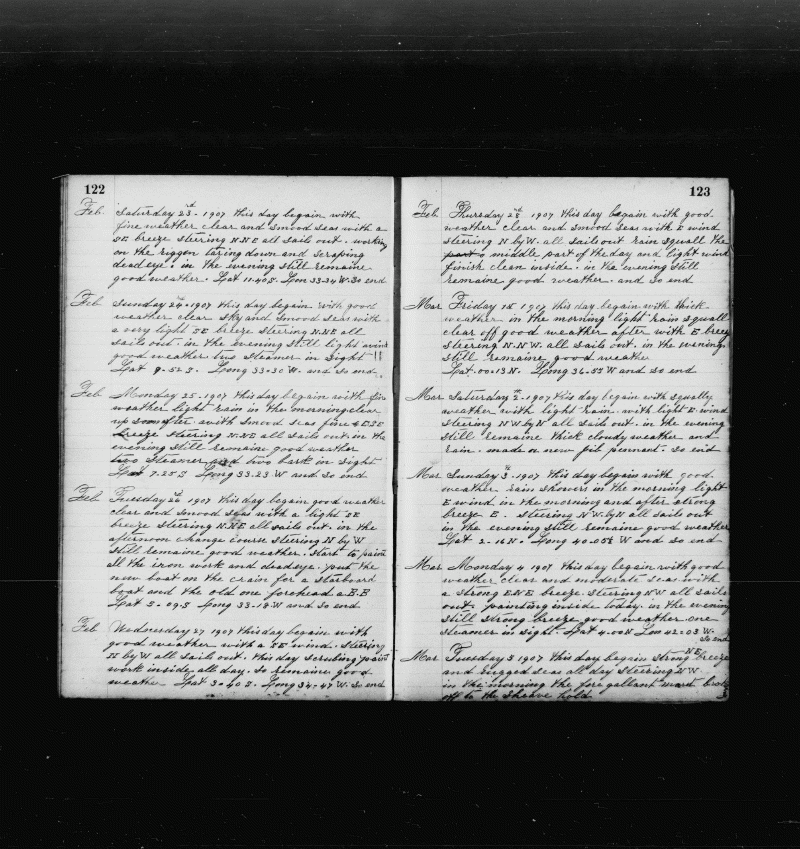 122
Feb. Saturday 23rd - 1907 this day begain with
fine weather clear and smood seas with a
SE breeze steering N.N.E all sails out. working
on the riggen taring down and scraping
deadeye. in the evening still remaine
good weather. Lat 11-40 S. Lon 33-34 W. So end
Feb Sunday 24th-1907 this day begain with good
weather clear sky and smood seas with
a very light SE breeze steering N.NE all
sails out. in the evening still light wind
good weather two steamer in Sight !!
Lat 9-52 S. Long 33-30 W. and so end
Feb Monday 25-1907 this day begain with fine
weather light rain in the morning clear
up soon after with smood seas fine
breeze steering N.NE all sails out. in the
evening still remaine good weather
two steamer and two bark in Sight
Lat 7-25 S Long 33-23 W and so end
Feb Tuesday 26th 1907 this day begain good weather
clear and smood seas with a light SE
breeze steering N.NE all sails out. in the
afternoon change course steering N by W
still remaine good weather. start to paint
all the iron work and deadeye. put the
new boat on the crain for a starboard
boat and the old one forehead a B.B
Lat 5-09 S Long 33-19 W and so end
Feb Wednesday 27 1907 this day begain with
good weather with a SE wind. steering
N by W all sails out. this day scrubing paint
work inside all day. So remaine good
weathe Lat 3-40 S. Long 34-47 W. So end
123
Feb Thursday 28 1907 this day begain with good
weather clear and smood seas with E wind
steering N by W. all sails out rain squall the
middle part of the day and light wind
finish clean inside. in the evening still
remaine good weather. and so end
Mar Friday 1st 1907 this day begain with thick
weather in the morning light rain squall
clear off good weather after with E breeze
steering N.N.W. all sails out. in the evening
still remaine good weathe
Lat-00-13 N. Long 36-55 W and so end
Mar Saturday 2-1907 this day begain with squally
weather with light rain. with light E wind
steering N W by N all sails out. in the evening
still remaine thick cloudy weather and
rain. made a new pennent. So end
Mar Sunday 3-1907 this day begain with good
weather rain showers in the morning light
E wind in the morning and after strong
breeze E. steering N W. by N all sails out
in the evening still remaine good weather
Lat 2-16 N. Long 40-05 W and so end
Mar Monday 4 1907 this day begain with good
weather clear and moderate seas with
a strong E.N.E breeze. steering N W all sails
out. painting inside today. in the evening
still strong breeze good weather. one
steamer in sight. Lat 4-00 N Lon 42-03 W.
So end
Mar Tuesday 5 1907 this day begain strong NE breeze
and rugged seas all day steering N W
in the morning the fore gallant broke
off to the sheave hold